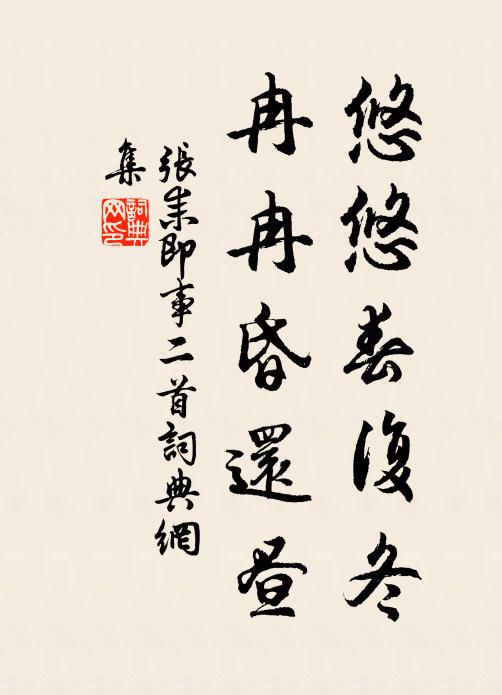 悠悠春復冬
冉冉昏還晝
張耒即事二首詞典網
集
詞典
網印